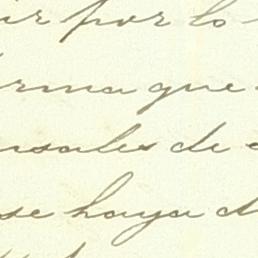 ir por lo
rma que
nsales de
se haya d